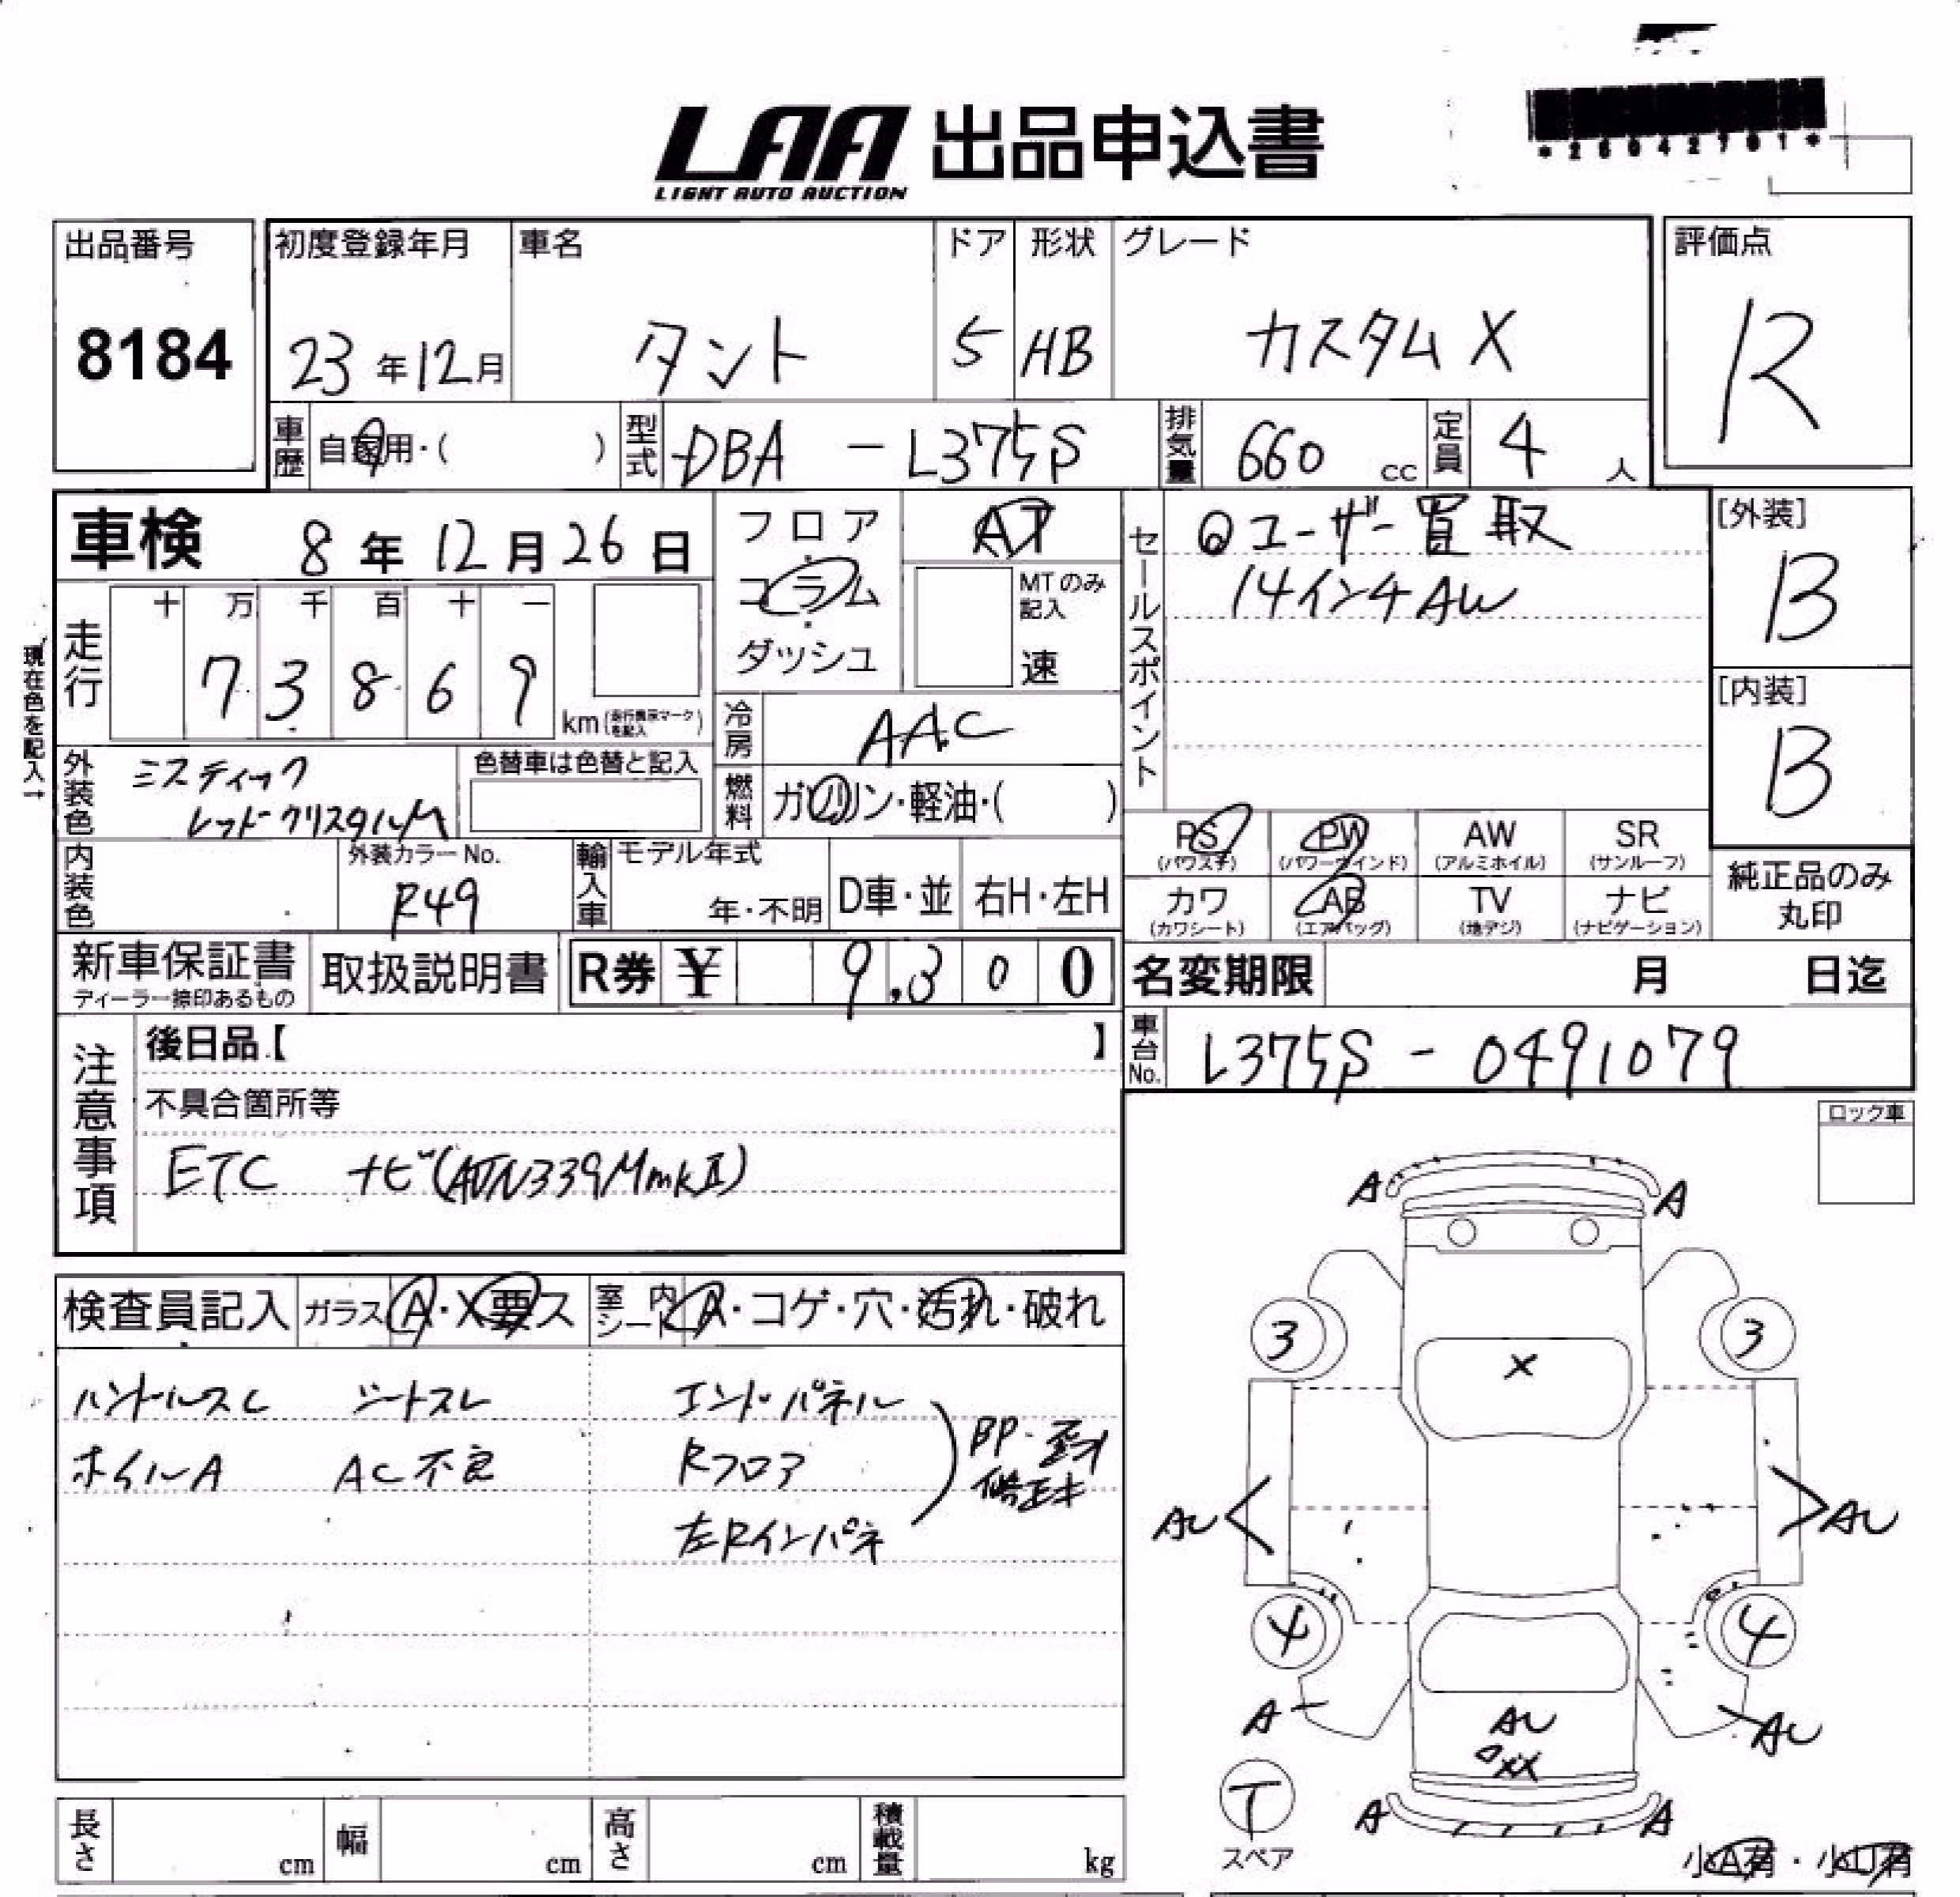 LAA 出品申込書
LIGHT AUTO AUCTION
*26042701*
出品番号
8184
初度登録年月
23年12月
車名
タント
ドア
5
形状
HB
グレード
カスタムX
評価点
R
車歴
自家用・( )
型式
DBA - L375S
排気量
660 cc
定員
4 人
車検 8年12月26日
フロア
・
コラム
・
ダッシュ
AT
MTのみ
記入
速
セールスポイント
ユーザー買取
14インチAW
[外装]
B
[内装]
B
現在色を記入→
走行
十 万 千 百 十 一
7 3 8 6 9
km (走行表示マークを記入)
冷房
AAC
外装色
ミスティック
レッドクリスタルM
色替車は色替と記入
燃料
ガソリン・軽油・( )
PS
(パワステ)
PW
(パワーウインド)
AW
(アルミホイル)
SR
(サンルーフ)
内装色
外装カラーNo.
R49
輸入車
モデル年式
年・不明
D車・並
右H・左H
カワ
(カワシート)
AB
(エアバッグ)
TV
(地デジ)
ナビ
(ナビゲーション)
純正品のみ
丸印
新車保証書
ディーラー捺印あるもの
取扱説明書
R券 ¥ 9,300
名変期限 月 日迄
注意事項
後日品【 】
不具合箇所等
ETC ナビ(ADN339MmkⅡ)
車台No.
L375S - 0491079
ロック車
A A
3 3
X
AU AU
4 4
A AU
AU
XX
T
スペア
A A
小A有・小U有
検査員記入
ガラス A・X要ス
室内シート A・コゲ・穴・汚れ・破れ
ハンドルスレ シートスレ エンドパネル
ホイルA AC不良 Rフロア
左Rインパネ
BP・歪み
修正キ
長さ cm
幅 cm
高さ cm
積載量 kg